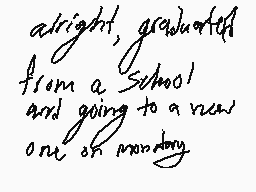 alright, graduated
from a school
and going to a new
one on monday